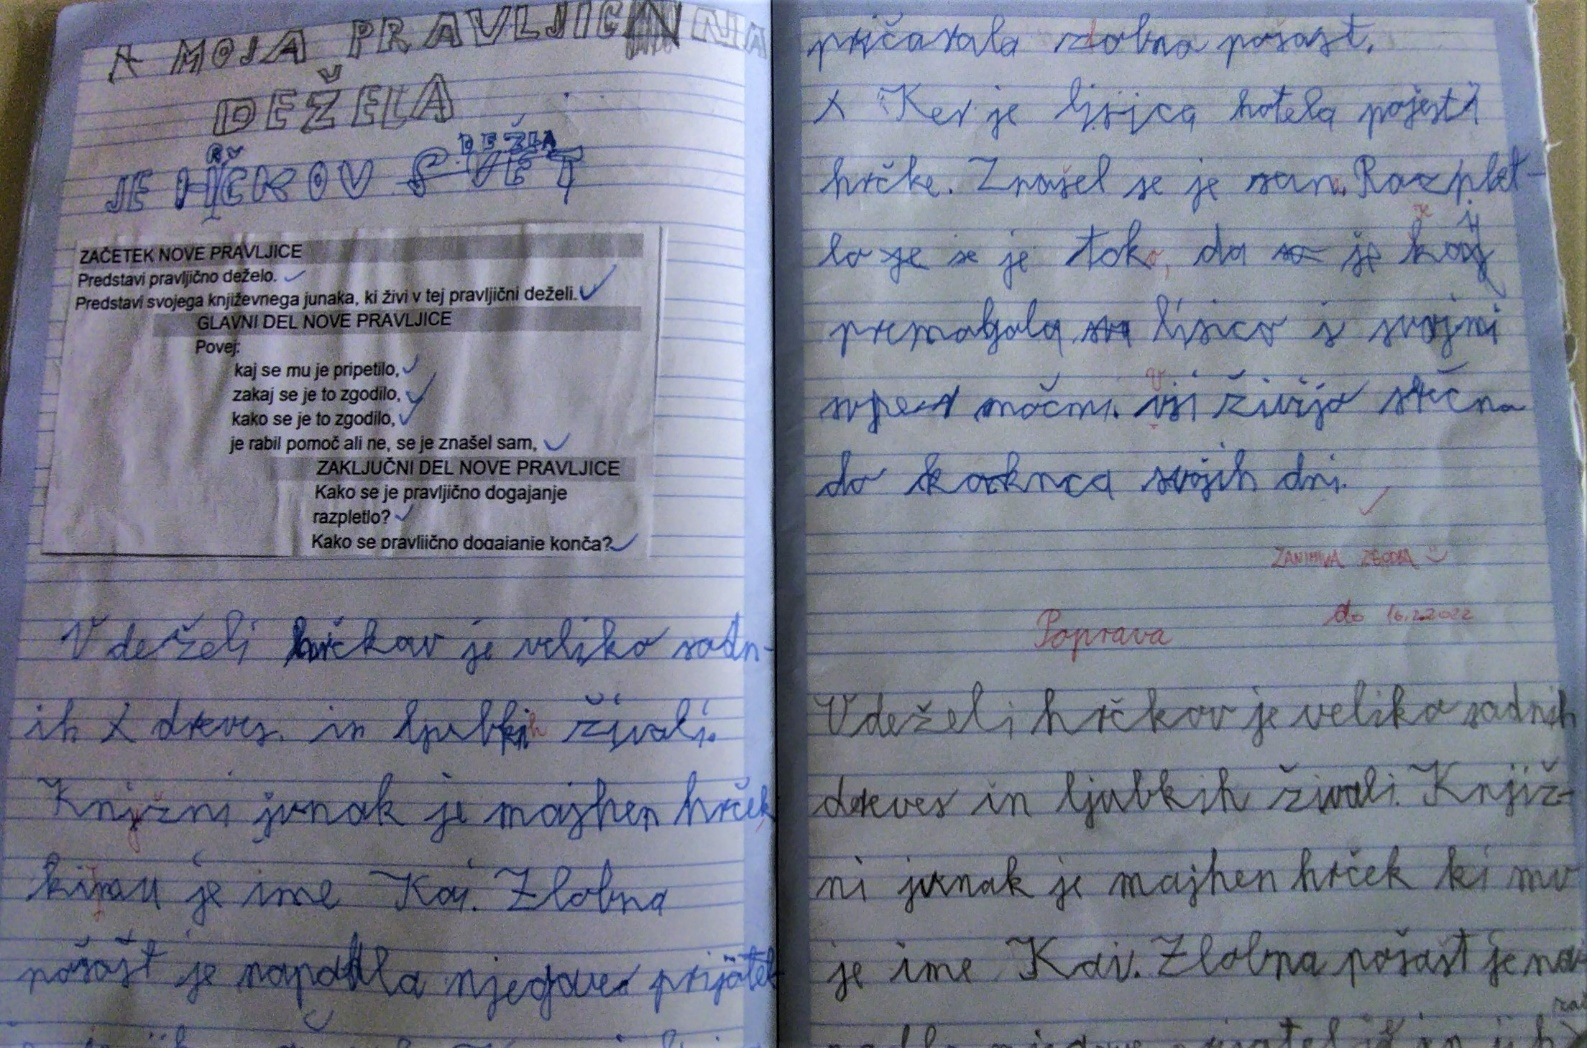 MOJA PRAVLJIČNA
DEŽELA
JE HRČKOV DEŽELA
SVET
ZAČETEK NOVE PRAVLJICE
Predstavi pravljično deželo.
Predstavi svojega književnega junaka, ki živi v tej pravljični deželi.
GLAVNI DEL NOVE PRAVLJICE
Povej:
kaj se mu je pripetilo,
zakaj se je to zgodilo,
kako se je to zgodilo,
je rabil pomoč ali ne, se je znašel sam,
ZAKLJUČNI DEL NOVE PRAVLJICE
Kako se je pravljično dogajanje
razpletlo?
Kako se pravljično dogajanje konča?
V deželi hrčkov je veliko sadn-
ih dreves. in ljubkih živali.
Knjižni junak je majhen hrček
ki mu je ime Kai. Zlobna
pošast je napadla njegove prijatel
pričarala zlobna pošast.
Ker je lisica hotela pojesti
hrčke. Znašel se je sam. Razplet-
lo se je tako, da je Kaj
premagala lisico s svojimi
super močmi. Vsi živijo srečno
do konca svojih dni.
ZANIMIVA ZGODBA
do 16.2.2022
Poprava
V deželi hrčkov je veliko sadnih
dreves in ljubkih živali. Knjiž-
ni junak je majhen hrček ki mu
je ime Kai. Zlobna pošast je na-